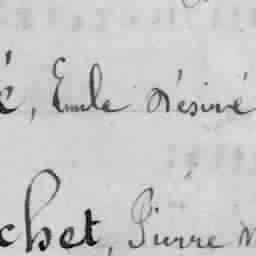 é, Emile Désiré
chet, Pierre